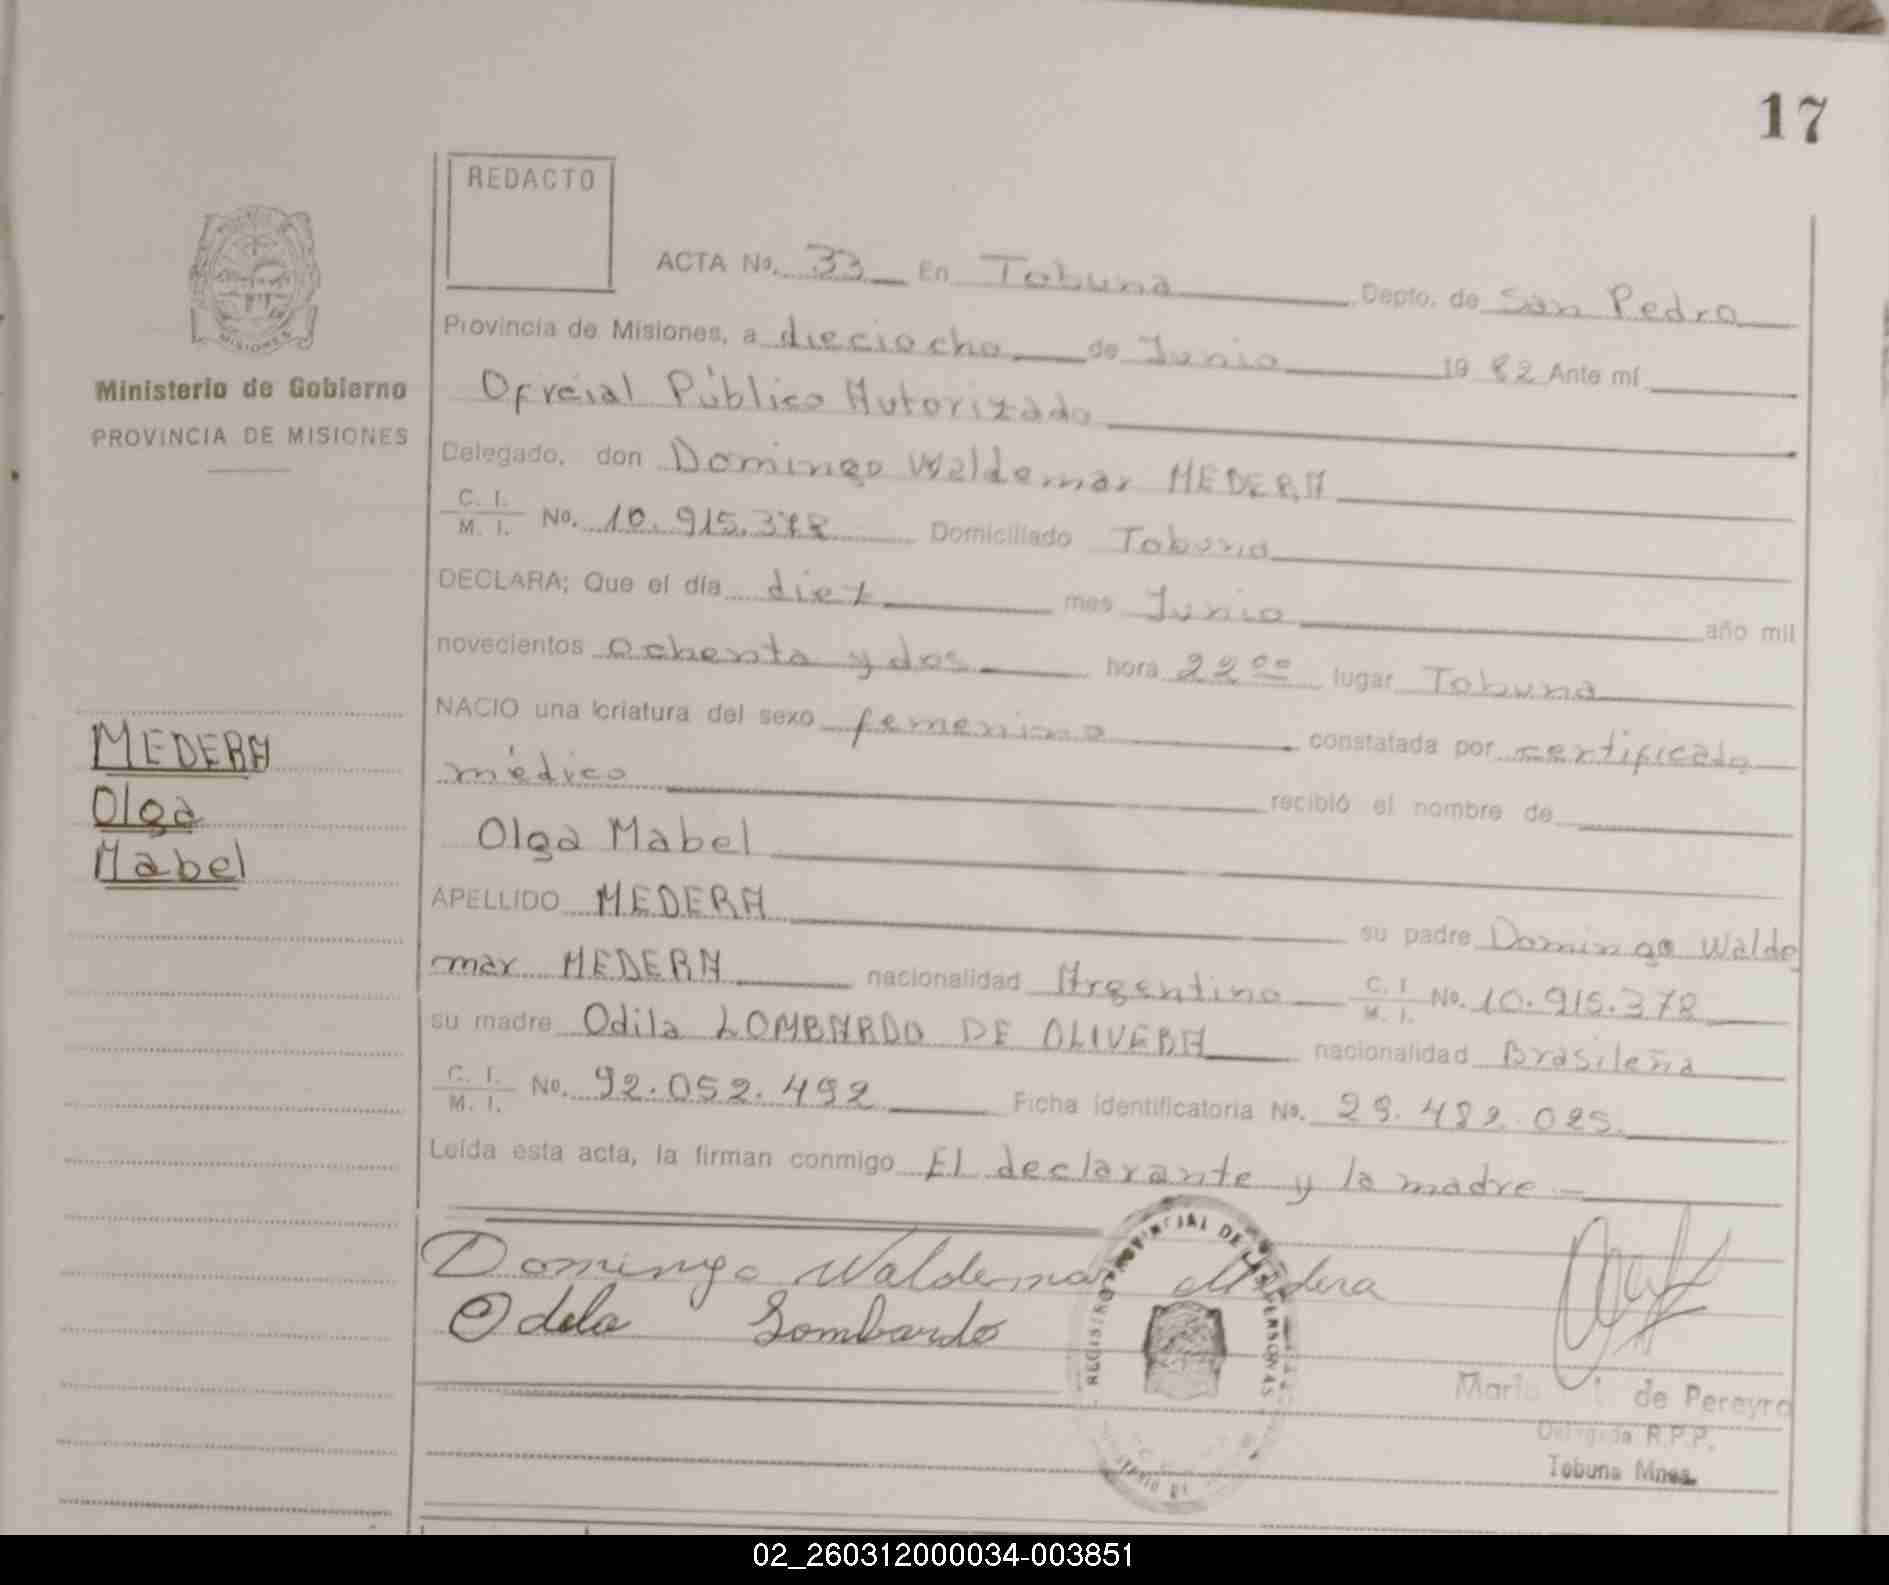 17
REDACTO
ACTA No. 33 En Tobuna Depto. de San Pedro
Provincia de Misiones, a dieciocho de Junio 19 82 Ante mí
Oficial Público Autorizado
Delegado, don Domingo Waldemar MEDERA
C. I.
M. I. No. 10.915.378 Domiciliado Tobuna
DECLARA; Que el día diez mes Junio año mil
novecientos ochenta y dos hora 22 00 lugar Tobuna
NACIO una criatura del sexo femenino constatada por certificado
médico recibió el nombre de
Olga Mabel
APELLIDO MEDERA su padre Domingo Walde
mar MEDERA nacionalidad Argentino C. I.
M. I. No. 10.915.378
su madre Odila LOMBARDO DE OLIVERA nacionalidad Brasileña
C. I.
M. I. No. 92.052.492 Ficha identificatoria No. 29.482.025.
Leída esta acta, la firman conmigo El declarante y la madre
Domingo Waldemar Medera
Odila Lombardo
REGISTRO PROVINCIAL DE LAS PERSONAS
de Pereyra
Delegada R.P.P.
Tobuna Mnes.
MISIONES
Ministerio de Gobierno
PROVINCIA DE MISIONES
MEDERA
Olga
Mabel
02_260312000034-003851